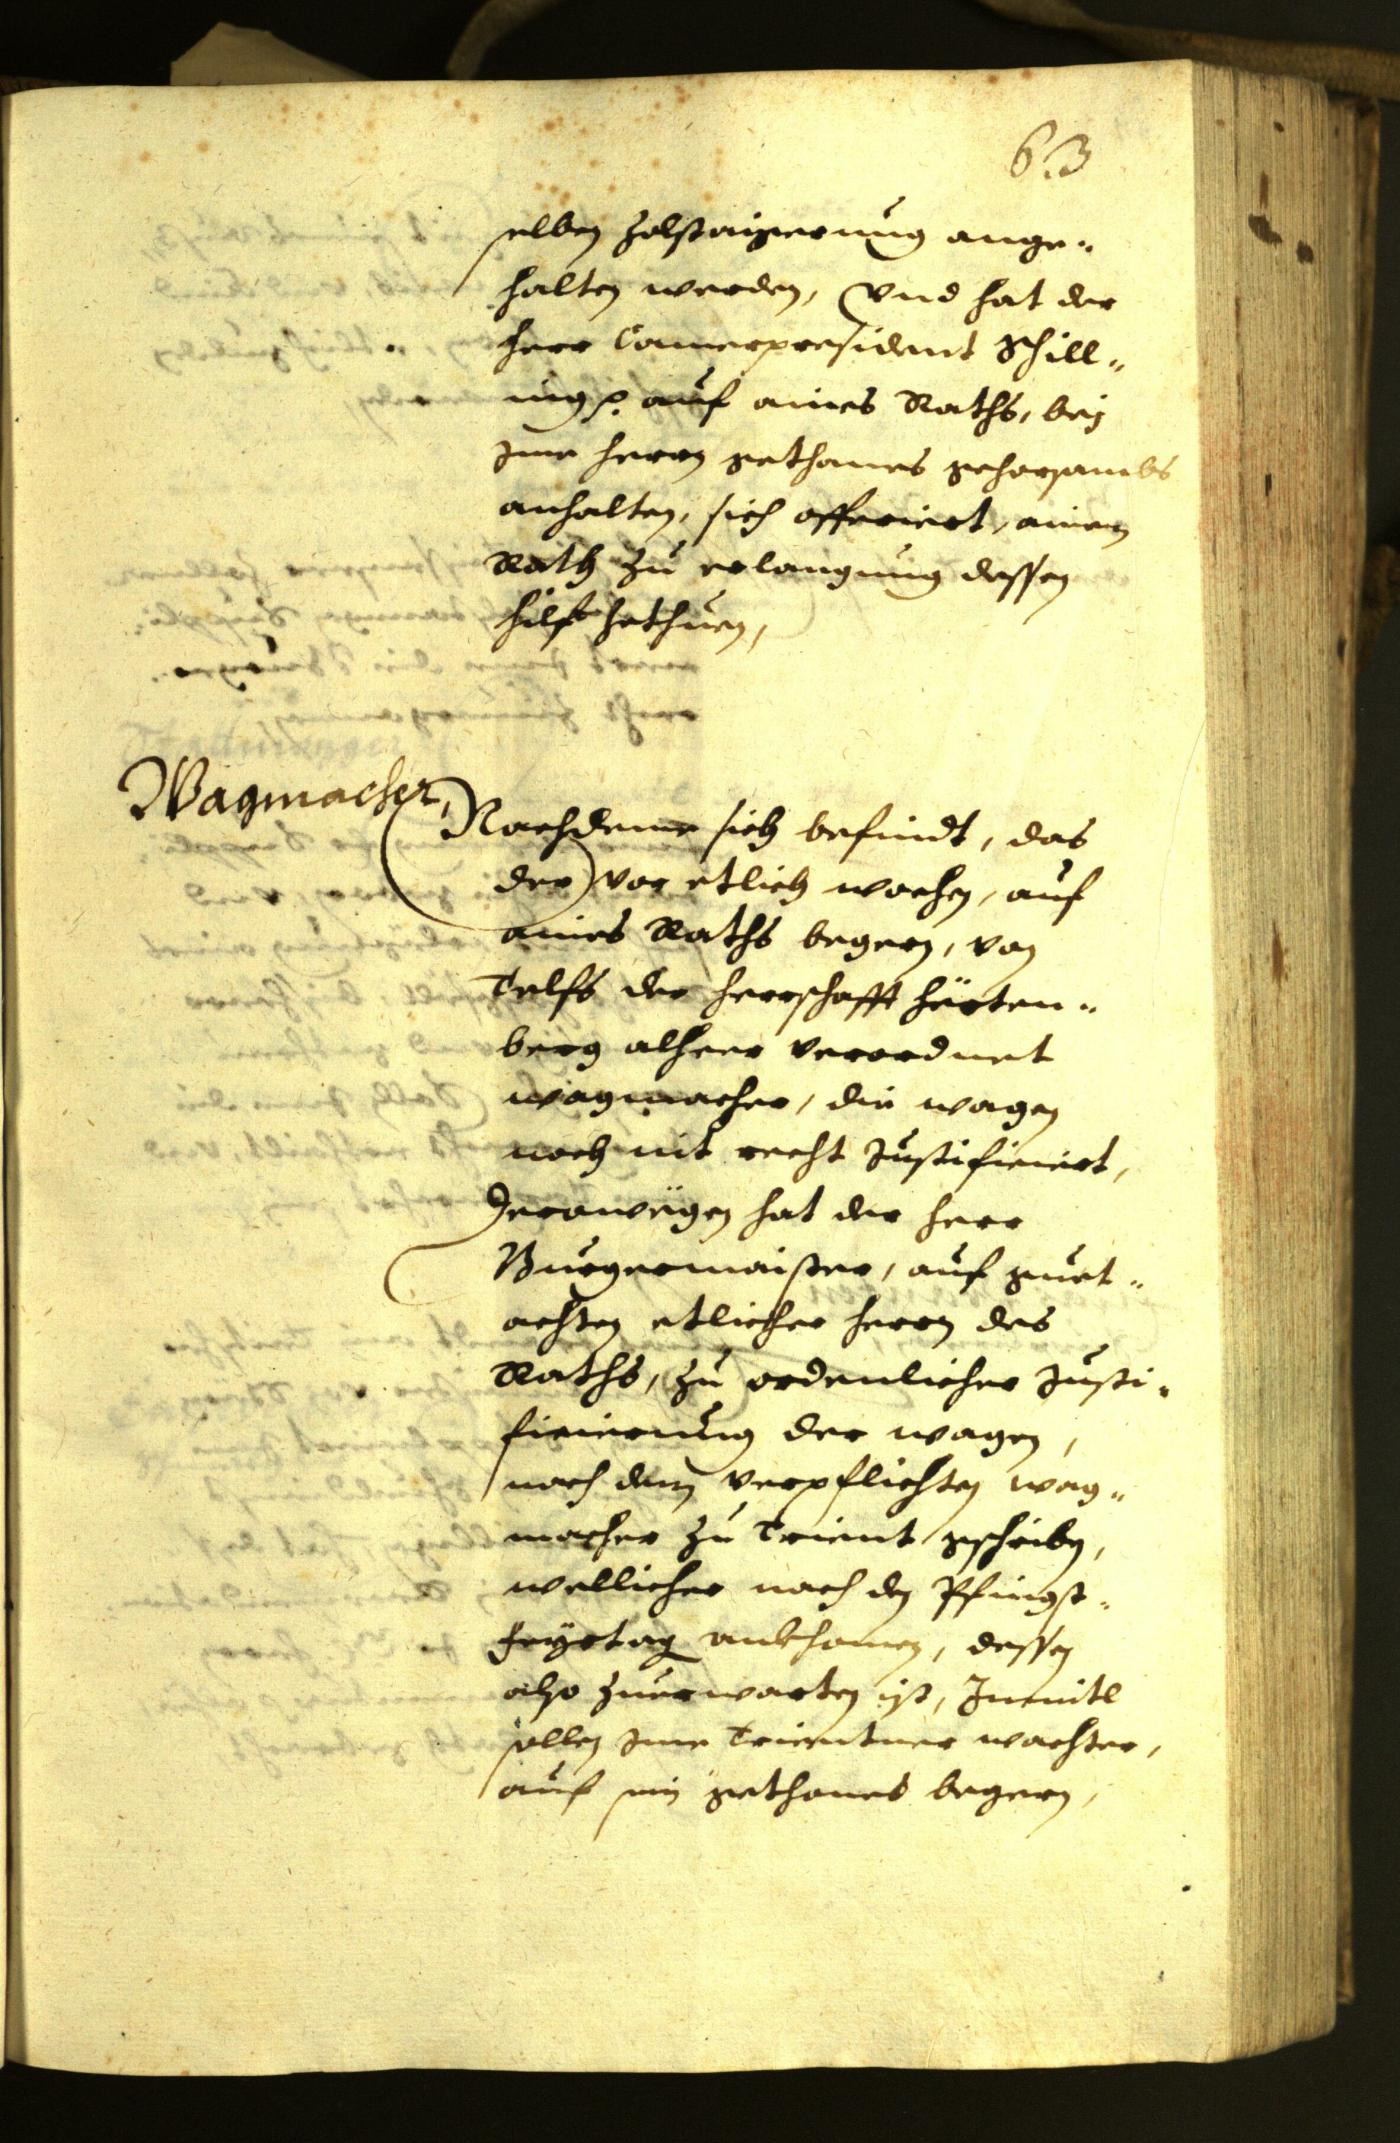 63
selben Zolstaigerung ange-
halten werden, Vnd hat der
herr Camerpresident Schill-
ing auf aines Raths, bey
Ime herrn gethanes gehorsambs
anhalten, sich offeriert, ainem
Rath zu erlangung dessen
hilf zethuen,
Wagmacher,
Nachdeme sich befindt, das
der vor etlich wochen, auf
aines Raths begern, von
Telfs der herrschafft Hörten-
berg alheer verordnet
wagmacher, die wagen
noch nit recht Justificiert,
Derowegen hat der herr
Burgermaister, auf guet-
achten etlicher herrn des
Raths, zu ordenlicher Justi-
ficierung der wagen,
nach dem verpflichten wag-
macher zu Trient geschriben,
wellicher nach den Pfingst-
feyrtag ankhomen, dessen
also zuerwarten ist, Inmitl
sollen Ime Trientner wachter,
auf sein gethanes begern,